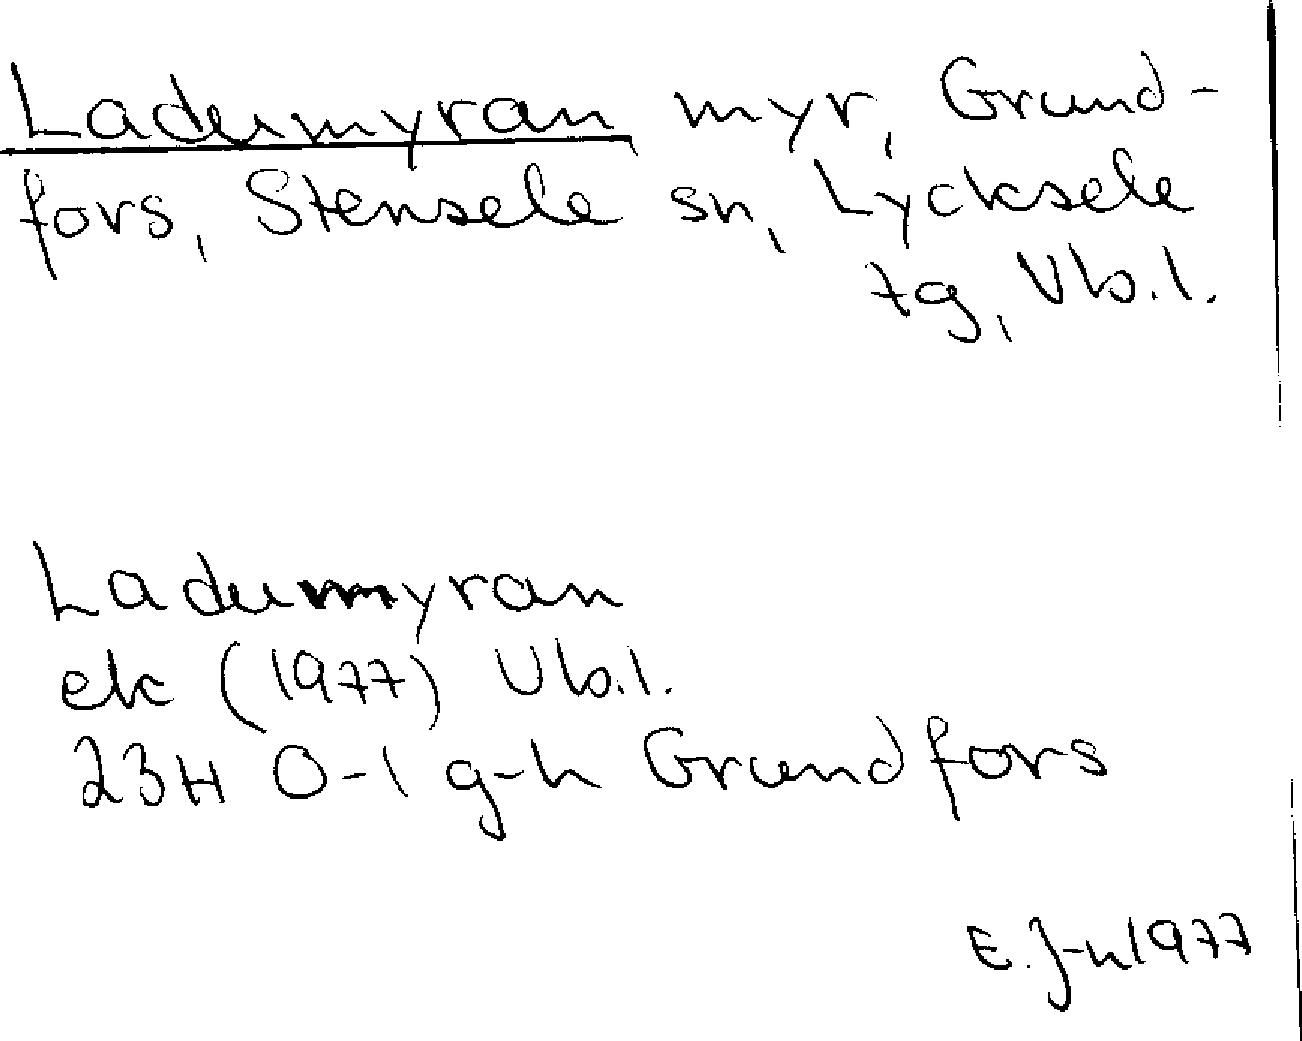 Ladumyran myr, Grund-
fors, Stensele sn, Lycksele
tg, Vb.l.
Ladumyran
ek (1977) Vb.l.
23H 0-1 g-h Grundfors
E. J-n 1977